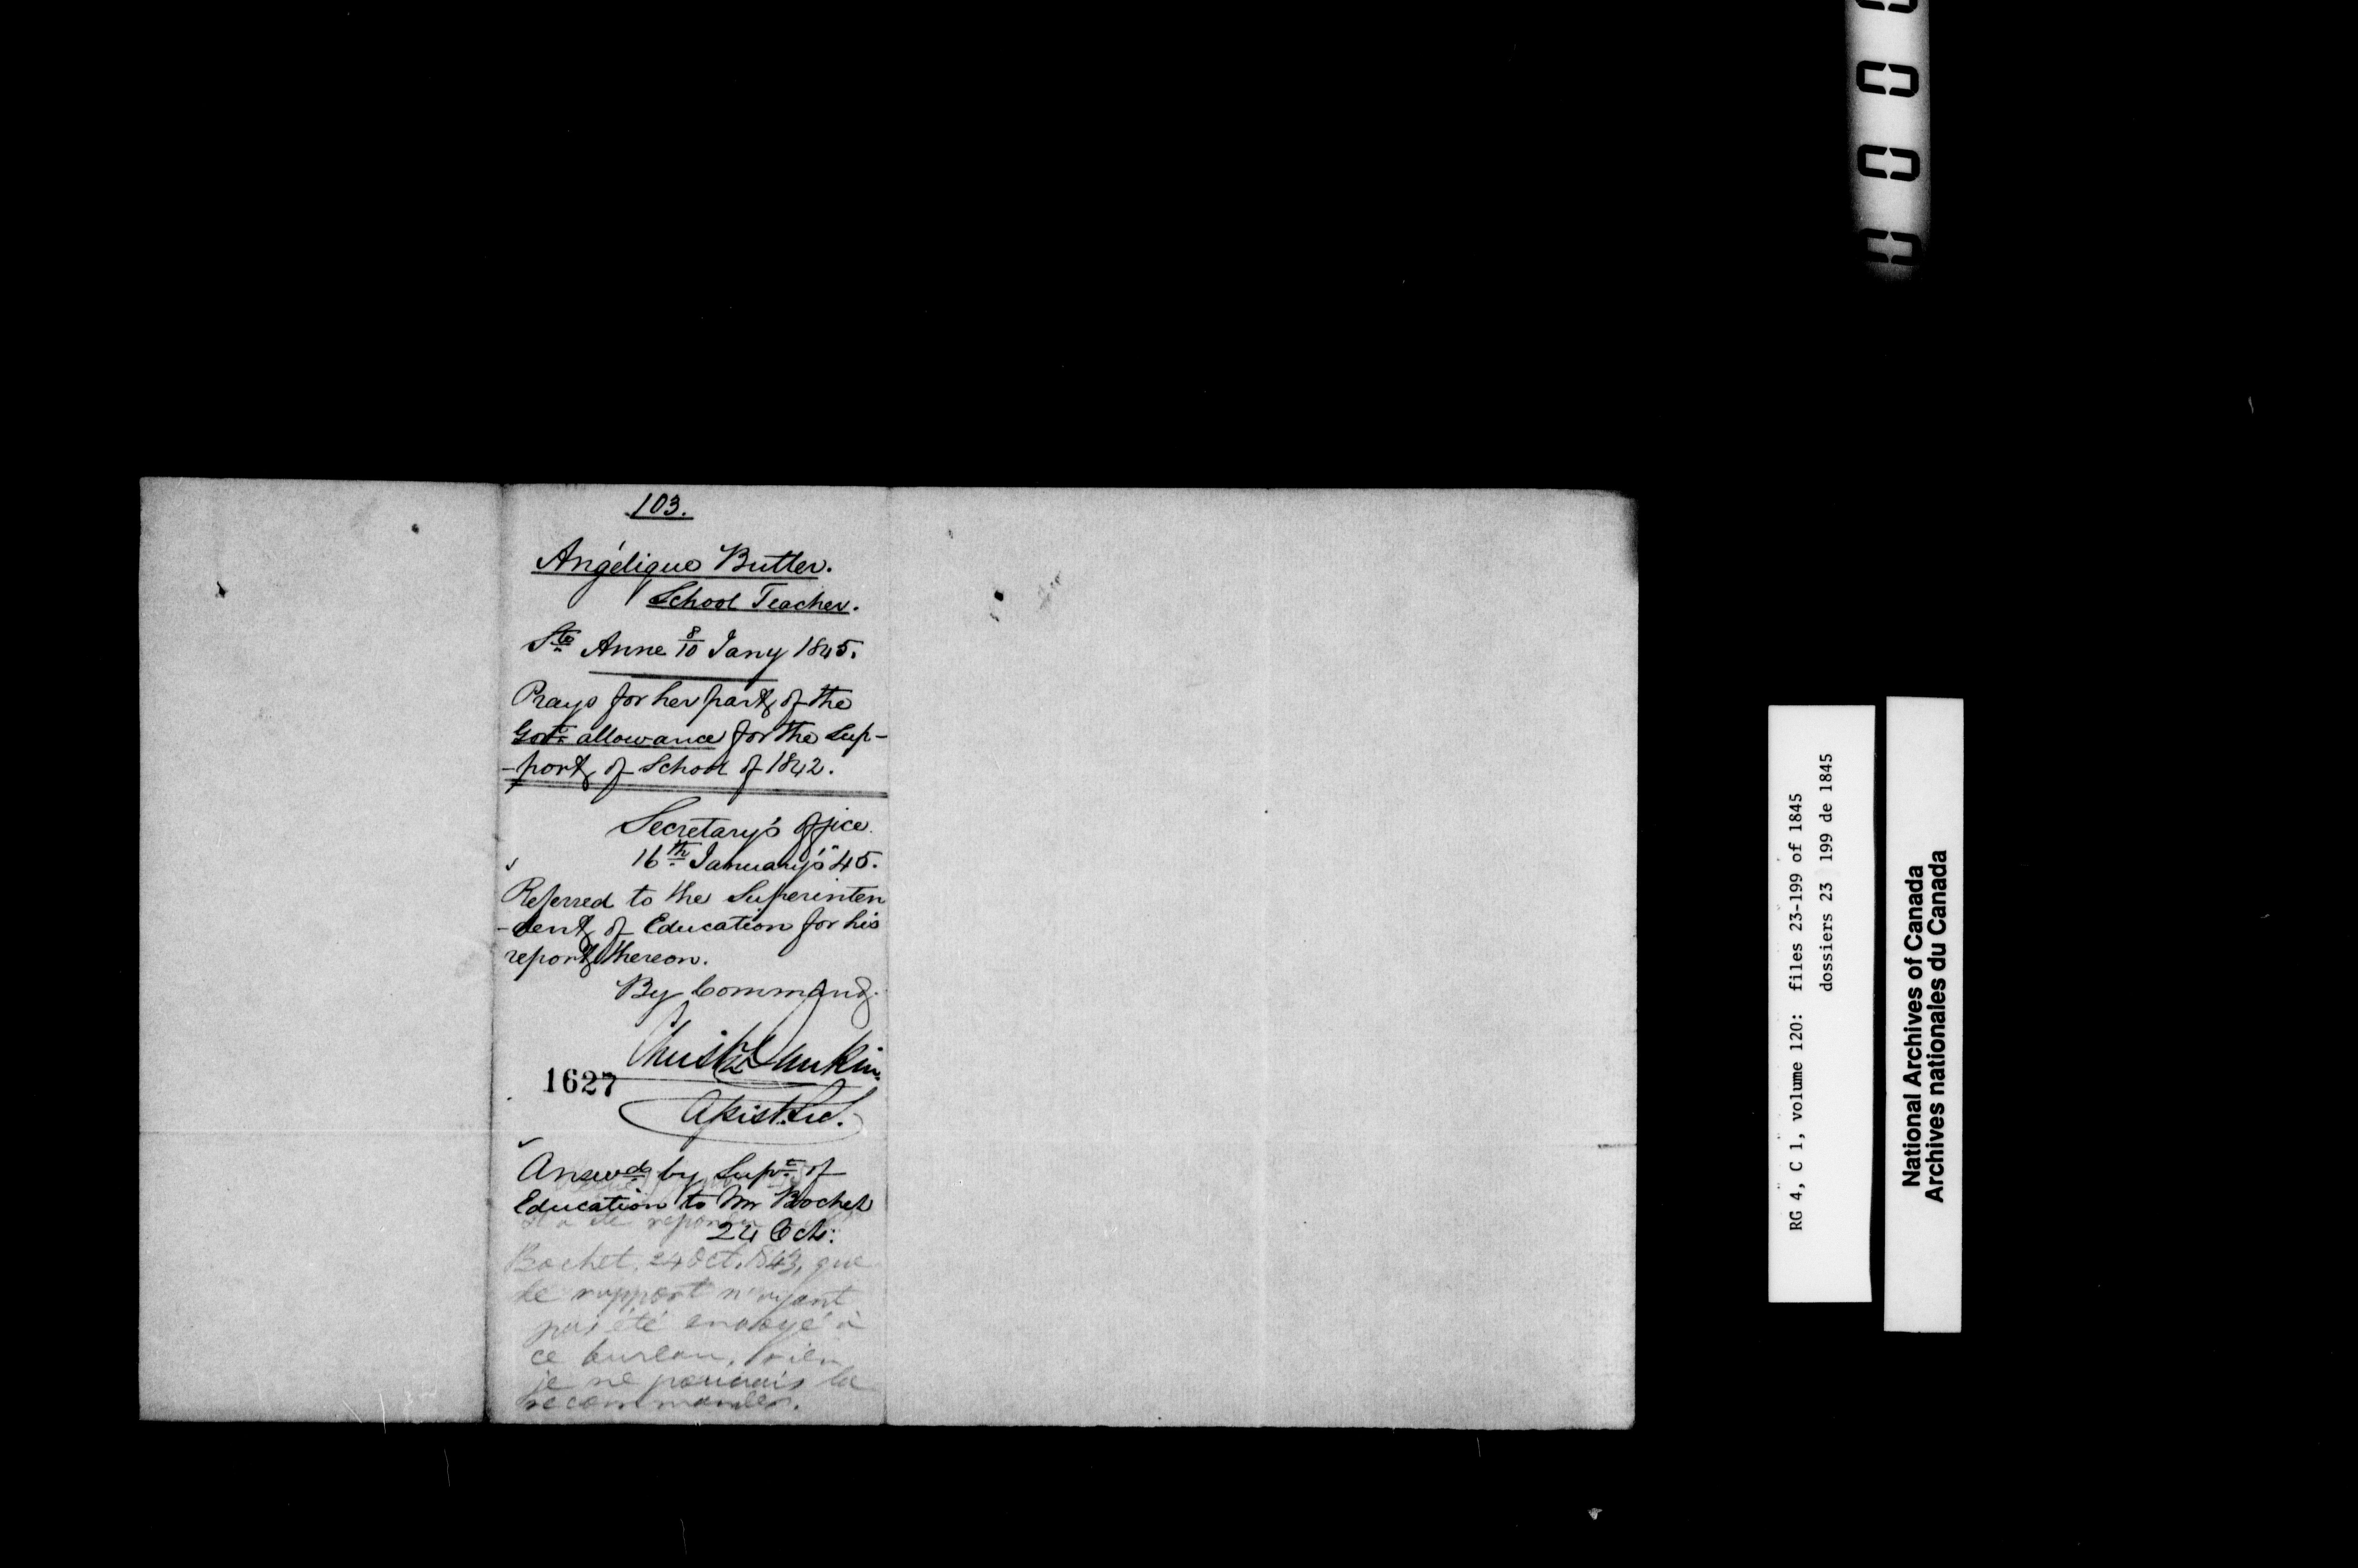 103.
Angélique Butler.
School Teacher.
Ste Anne 8/10 Jany 1845.
Prays for her part of the
Govt. allowance for the Sup-
-port of School of 1842.
Secretary's Office
16th January '45.
Referred to the Superinten
-dent of Education for his
report thereon.
By Command,
Christr Dunkin
1627
Assist. Sec.
Answd by Supt of
Education to Mr Bochet
Il a été répondu
24 Oct:
Bochet, 24 Oct. 1843, que
le rapport n'ayant
pas été envoyé à
ce bureau,
je ne pouvais la
recommander.
RG 4, C 1, volume 120: files 23-199 of 1845
dossiers 23 199 de 1845
National Archives of Canada
Archives nationales du Canada
0 0 0 0